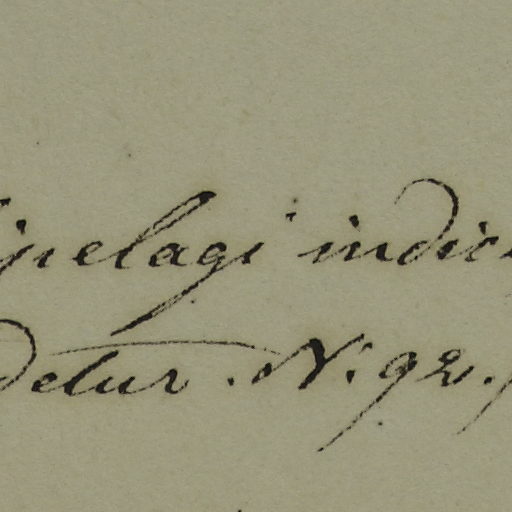 ipelagi indic
detur. N: 92.